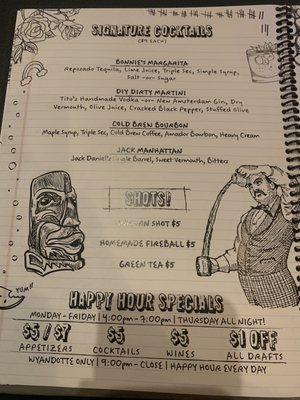 SIGNATURE COCKTAILS
($9 EACH)
BONNIE'S MARGARITA
REPOSADO TEQUILA, LIME JUICE, TRIPLE SEC, SIMPLE SYRUP,
SALT -OR- SUGAR
DIY DIRTY MARTINI
TITO'S HANDMADE VODKA -OR- NEW AMSTERDAM GIN, DRY
VERMOUTH, OLIVE JUICE, CRACKED BLACK PEPPER, STUFFED OLIVE
COLD BREW BOURBON
MAPLE SYRUP, TRIPLE SEC, COLD BREW COFFEE, AMADOR BOURBON, HEAVY CREAM
JACK MANHATTAN
JACK DANIEL'S SINGLE BARREL, SWEET VERMOUTH, BITTERS
SHOTS!
SHOT $5
HOMEMADE FIREBALL $5
GREEN TEA $5
YUM!!
HAPPY HOUR SPECIALS
MONDAY - FRIDAY | 4:00PM - 7:00PM | THURSDAY ALL NIGHT!
$5 / $7 $5 $5 $1 OFF
APPETIZERS COCKTAILS WINES ALL DRAFTS
WYANDOTTE ONLY | 9:00PM - CLOSE | HAPPY HOUR EVERY DAY